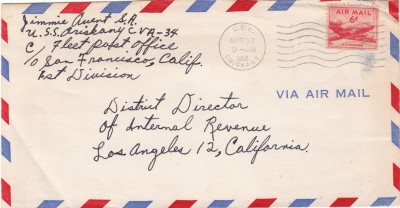 Jimmie Avent S.R.
U.S.S. Oriskany CVA-34
c/o Fleet Post Office
San Francisco, Calif.
1st Division
U.S.S.
1955
ORISKANY
AIR MAIL
6¢
VIA AIR MAIL
District Director
of Internal Revenue
Los Angeles 12, California.